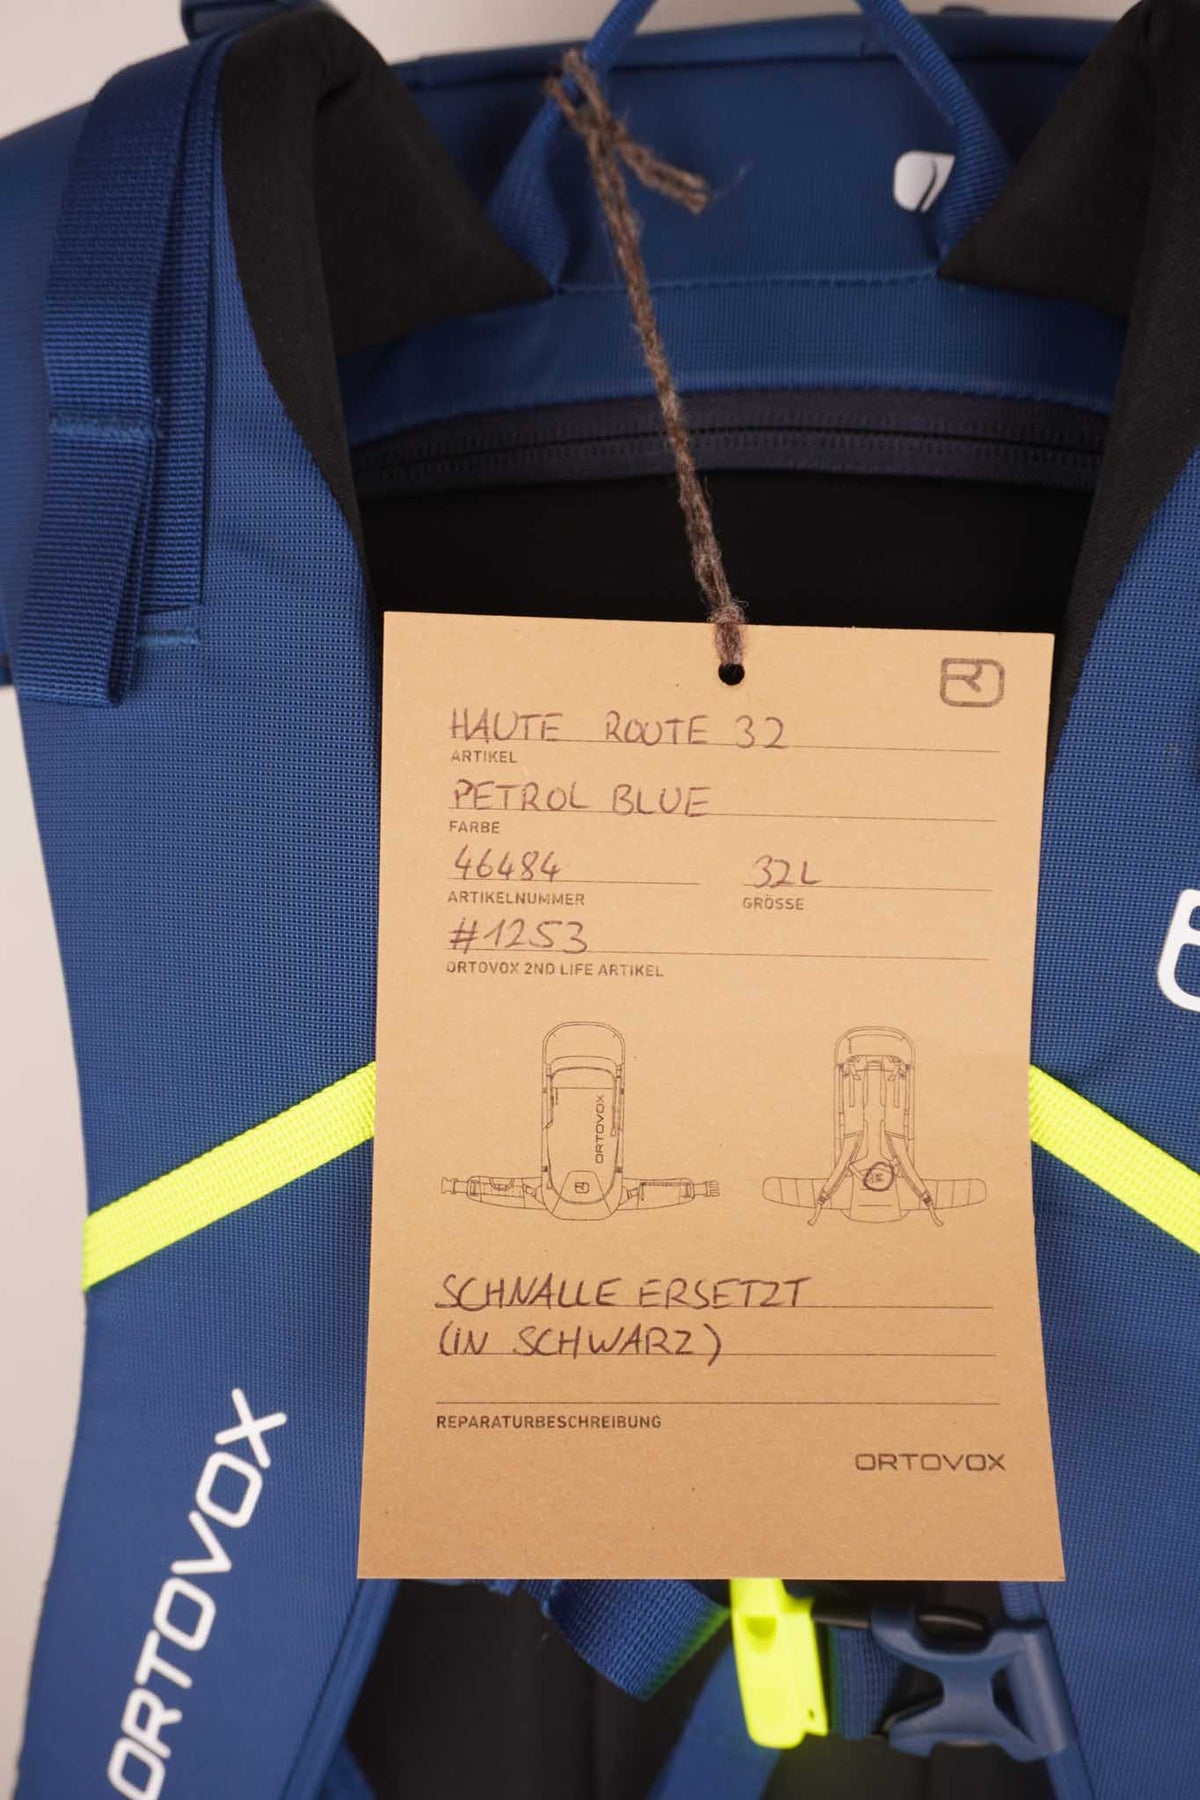 HAUTE ROUTE 32
ARTIKEL
PETROL BLUE
FARBE
46484 32L
ARTIKELNUMMER GRÖSSE
#1253
ORTOVOX 2ND LIFE ARTIKEL
ORTOVOX
SCHNALLE ERSETZT
(IN SCHWARZ)
REPARATURBESCHREIBUNG
ORTOVOX
ORTOVOX